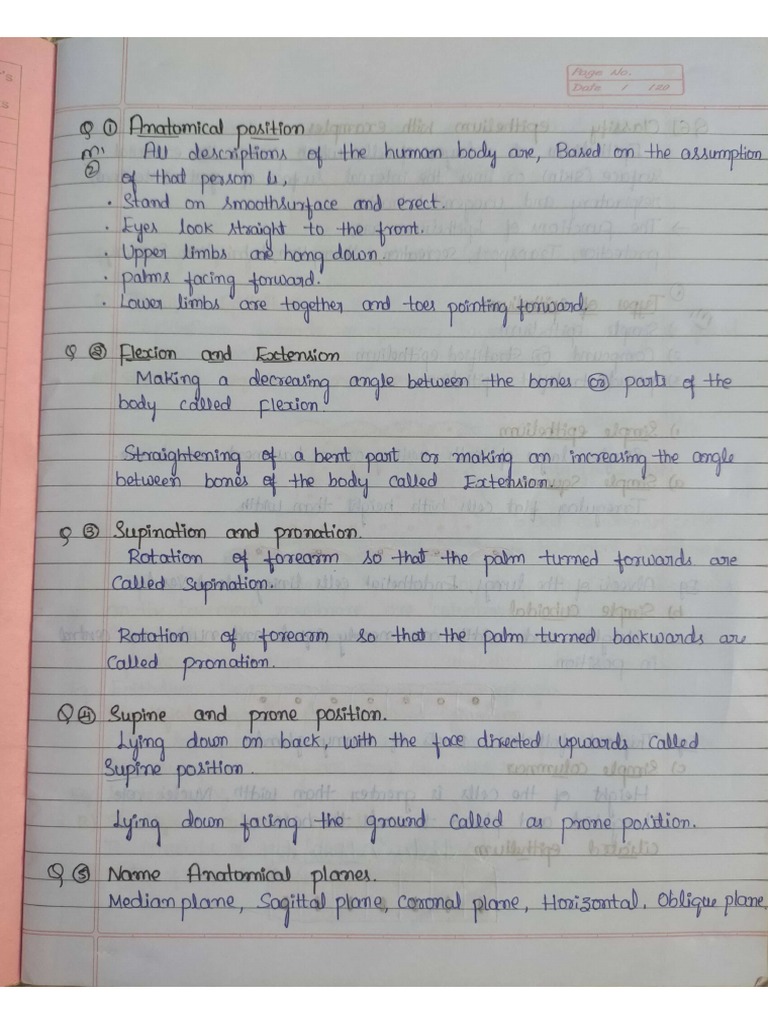 Page No.
Date / /20
Q ① Anatomical position
All descriptions of the human body are, Based on the assumption
② of that person is,
• Stand on smooth surface and erect.
• Eyes look straight to the front.
• Upper limbs are hang down.
• palms facing forward.
• Lower limbs are together and toes pointing forward.
Q ② Flexion and Extension
Making a decreasing angle between the bones or parts of the
body called Flexion.
Straightening of a bent part or making an increasing the angle
between bones of the body called Extension.
Q ③ Supination and pronation.
Rotation of forearm so that the palm turned forwards are
Called Supination.
Rotation of forearm so that the palm turned backwards are
Called pronation.
Q ④ Supine and prone position.
Lying down on back, with the face directed upwards called
Supine position.
Lying down facing the ground called as prone position.
Q ⑤ Name Anatomical planes.
Median plane, Sagittal plane, Coronal plane, Horizontal, Oblique plane.